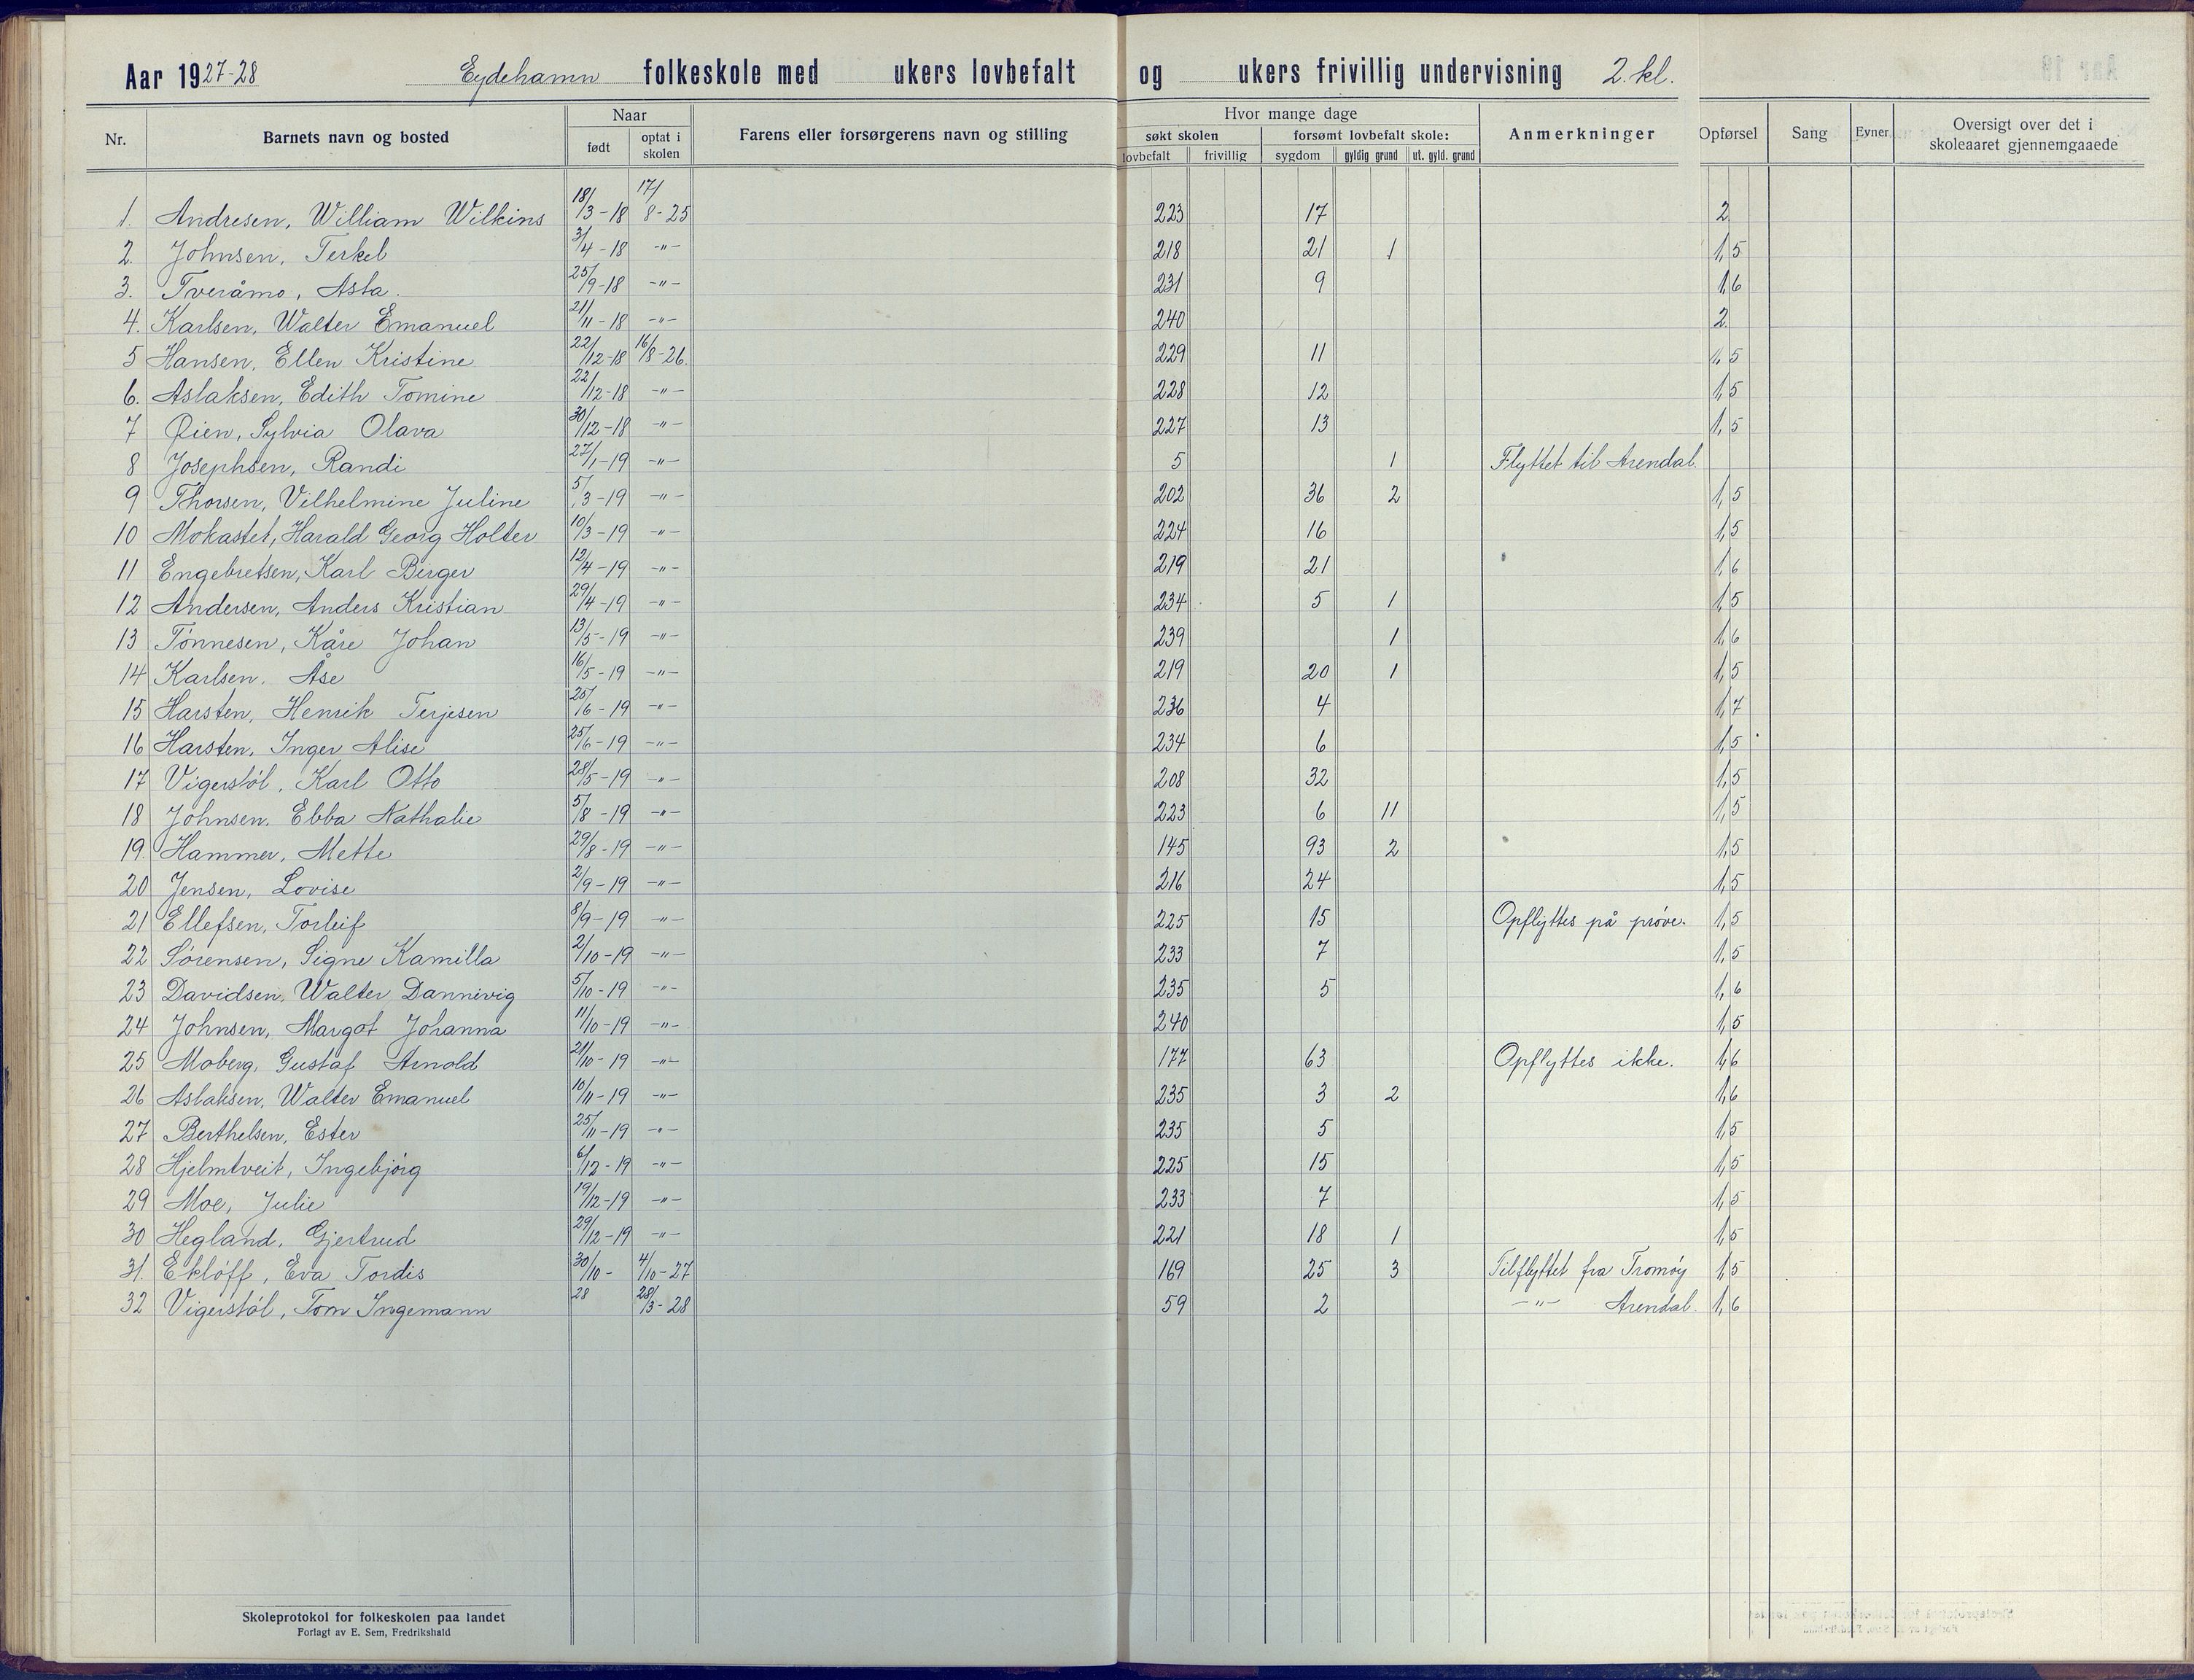 Aar 1927-28 Eydehamn folkeskole med ukers lovbefalt og ukers frivillig undervisning 2. kl.
Nr. Barnets navn og bosted Naar født optat i skolen Farens eller forsørgerens navn og stilling Hvor mange dage søkt skolen lovbefalt frivillig forsømt lovbefalt skole: sygdom gyldig grund ut. gyld. grund Anmerkninger Opførsel Sang Evner Oversigt over det i skoleaaret gjennemgaaede
1. Andresen, William Wilkins 18/3-18 17/8-25 223 17 2
2. Johnsen, Terkel 3/4-18 -"- 218 21 1 1,5
3. Tveråmo, Asta. 25/9-18 -"- 231 9 1,6
4. Karlsen, Walter Emanuel 21/11-18 -"- 240 2
5 Hansen, Ellen Kristine 22/12-18 16/8-26. 229 11 1,5
6. Aslaksen, Edith Tomine 22/12-18 -"- 228 12 1,5
7 Øien, Sylvia Olava 30/12-18 -"- 227 13 1,5
8 Josephsen, Randi 27/1-19 -"- 5 1 Flyttet til Arendal.
9 Thorsen, Vilhelmine Juline 5/3-19 -"- 202 36 2 1,5
10 Mokastet, Harald Georg Holter 10/3-19 -"- 224 16 1,5
11 Engebretsen, Karl Birger 12/4-19 -"- 219 21 1,6
12 Andersen, Anders Kristian 29/4-19 -"- 234 5 1 1,5
13 Tønnesen, Kåre Johan 13/5-19 -"- 239 1 1,6
14 Karlsen. Åse 16/5-19 -"- 219 20 1 1,5
15 Harsten, Henrik Terjesen 25/6-19 -"- 236 4 1,7
16 Harsten, Inger Alise 25/6-19 -"- 234 6 1,5
17 Vigerstøl, Karl Otto 28/5-19 -"- 208 32 1,5
18 Johnsen, Ebba Nathalie 5/8-19 -"- 223 6 11 1,5
19. Hammer, Mette 29/8-19 -"- 145 93 2 1,5
20 Jensen, Lovise 2/9-19 -"- 216 24 1,5
21 Ellefsen, Torleif 8/9-19 -"- 225 15 Opflyttes på prøve. 1,5
22 Sørensen, Signe Kamilla 2/10-19 -"- 233 7 1,5
23 Davidsen, Walter Dannivig 5/10-19 -"- 235 5 1,6
24 Johnsen, Margot Johanna 11/10-19 -"- 240 1,5
25 Moberg, Gustaf Arnold 21/10-19 -"- 177 63 Opflyttes ikke. 1,6
26 Aslaksen, Walter Emanuel 10/11-19 -"- 235 3 2 1,6
27 Berthelsen, Ester 25/11-19 -"- 235 5 1,5
28 Hjelmtveit, Ingebjørg 6/12-19 -"- 225 15 1,5
29 Moe, Julie 19/12-19 -"- 233 7 1,5
30 Hegland, Gjertrud 29/12-19 -"- 221 18 1 1,5
31. Ekløff, Eva Tordis 30/10- 4/10-27 169 25 3 Tilflyttet fra Tromøy 1,5
32 Vigerstøl, Tom Ingemann 28 28/3-28 59 2 -"- Arendal. 1,6
Skoleprotokol for folkeskolen paa landet
Forlagt av E. Sem, Fredrikshald